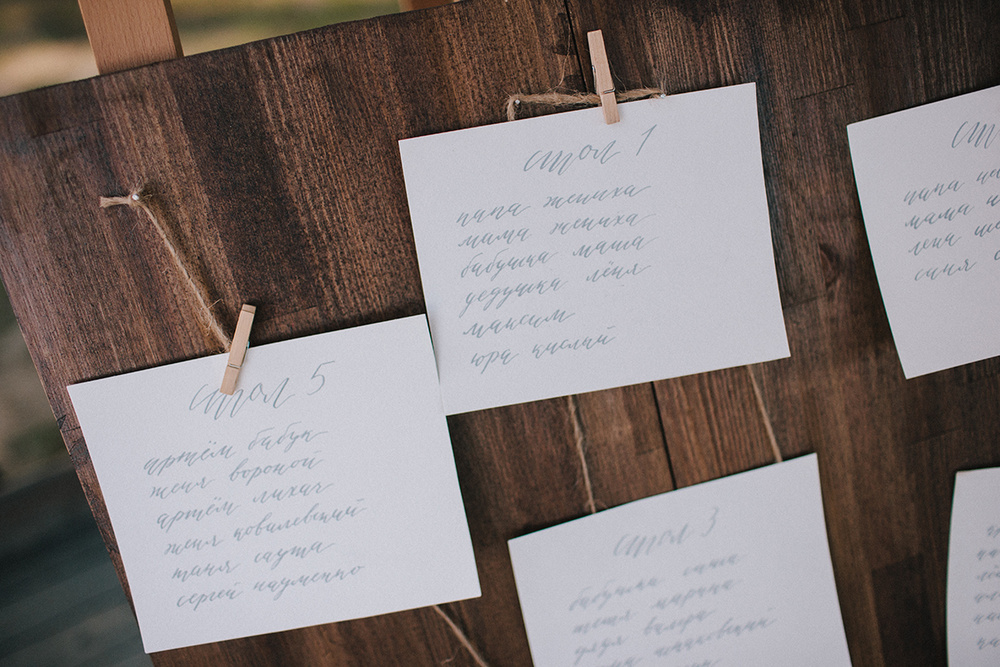 стол 1
папа жениха
мама жениха
бабушка маша
дедушка лёня
максим
юра кислый
стол 5
артём бабук
женя вороной
артём лихач
женя ковалевский
таня саута
сергей науменко
стол 3
бабушка саша
тётя марина
дядя валера
ст
папа
мама
лена
саня